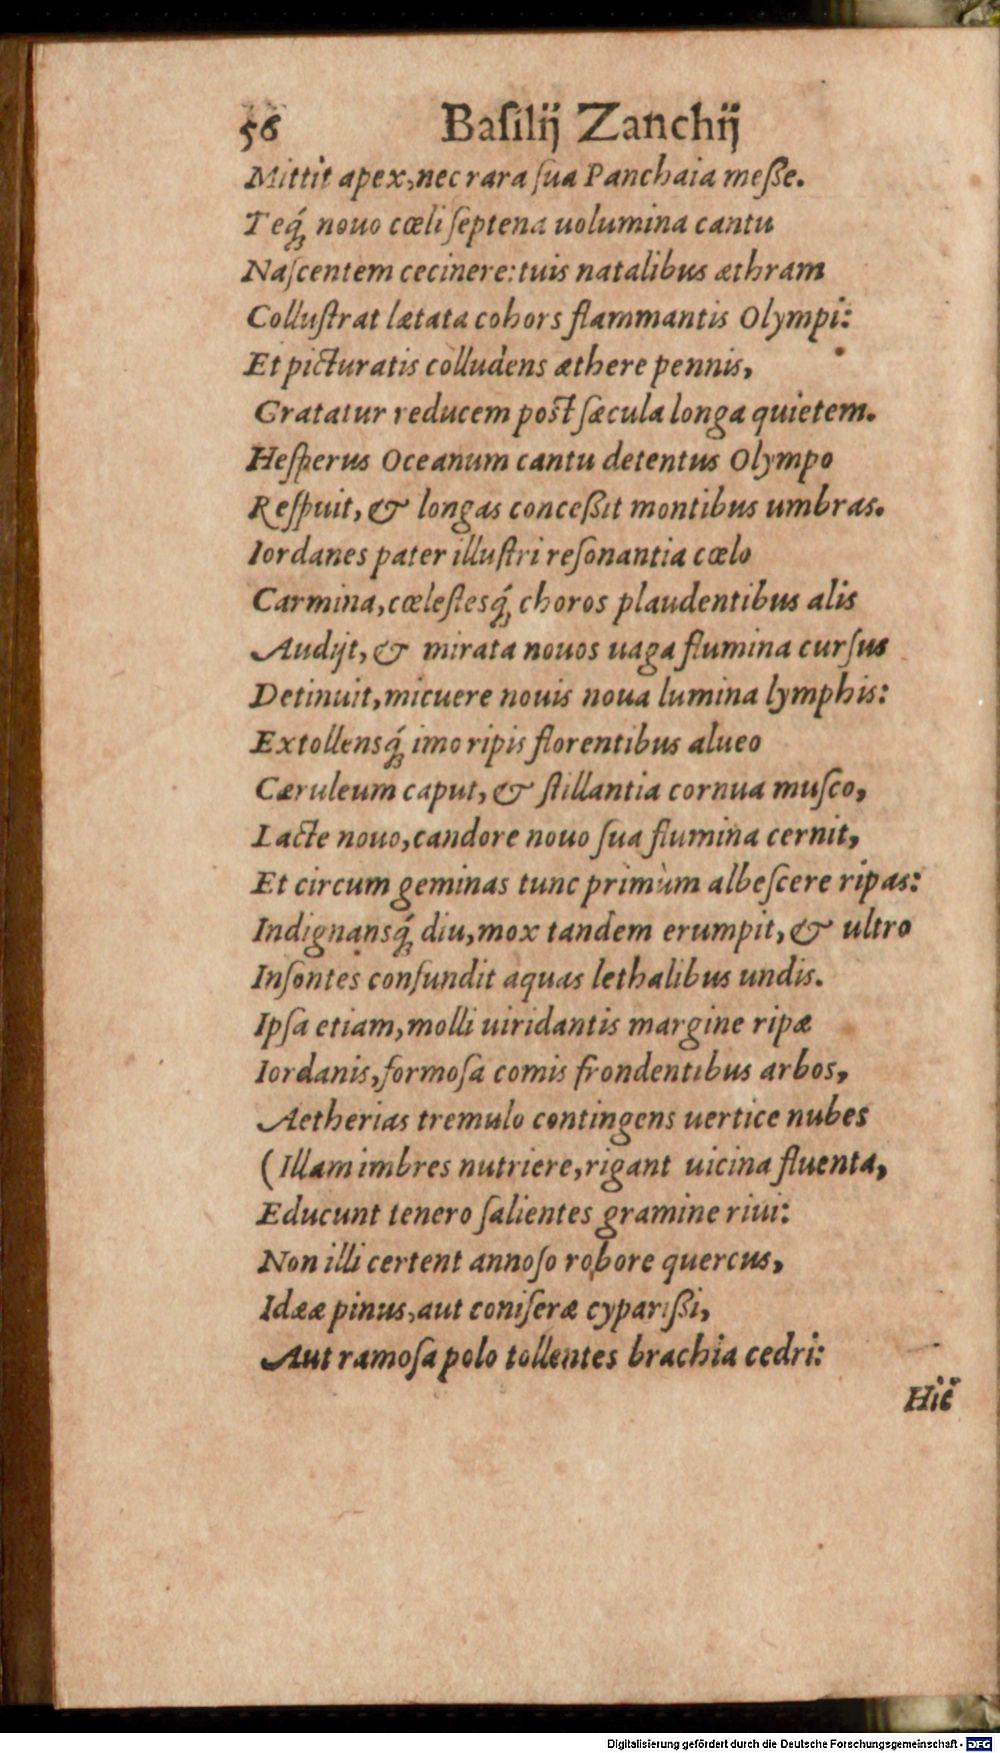 56 Baſilij Zanchij
Mittit apex, nec rara ſua Panchaia meſſe.
Teq́; nouo cœli ſeptena uolumina cantu
Naſcentem cecinere: tuis natalibus æthram
Colluſtrat lætata cohors flammantis Olympi:
Et picturatis colludens æthere pennis,
Gratatur reducem poſt ſæcula longa quietem.
Heſperus Oceanum cantu detentus Olympo
Reſpuit, & longas conceßit montibus umbras.
Iordanes pater illuſtri reſonantia cœlo
Carmina, cœleſtesq́; choros plaudentibus alis
Audijt, & mirata nouos uaga flumina curſus
Detinuit, micuere nouis noua lumina lymphis:
Extollensq́; imo ripis florentibus alueo
Cæruleum caput, & ſtillantia cornua muſco,
Lacte nouo, candore nouo ſua flumina cernit,
Et circum geminas tunc primùm albeſcere ripas:
Indignansq́; diu, mox tandem erumpit, & ultro
Inſontes confundit aquas lethalibus undis.
Ipſa etiam, molli uiridantis margine ripæ
Iordanis, formoſa comis frondentibus arbos,
Aetherias tremulo contingens uertice nubes
(Illam imbres nutriere, rigant uicina fluenta,
Educunt tenero ſalientes gramine riui:
Non illi certent annoſo robore quercus,
Idææ pinus, aut coniferæ cyparißi,
Aut ramoſa polo tollentes brachia cedri:
Hic
Digitalisierung gefördert durch die Deutsche Forschungsgemeinschaft - DFG